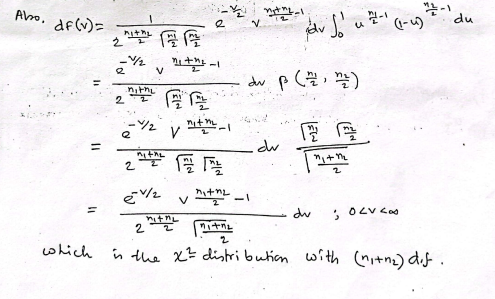 Also. dF(v) = 1 / (2^((n₁+n₂)/2) Γ(n₁/2) Γ(n₂/2)) e^(-v/2) v^((n₁+n₂)/2 -1) dv ∫₀¹ u^(n₁/2 -1) (1-u)^(n₂/2 -1) du
= e^(-v/2) v^((n₁+n₂)/2 -1) / (2^((n₁+n₂)/2) Γ(n₁/2) Γ(n₂/2)) dv β(n₁/2, n₂/2)
= e^(-v/2) v^((n₁+n₂)/2 -1) / (2^((n₁+n₂)/2) Γ(n₁/2) Γ(n₂/2)) dv Γ(n₁/2) Γ(n₂/2) / Γ((n₁+n₂)/2)
= e^(-v/2) v^((n₁+n₂)/2 -1) / (2^((n₁+n₂)/2) Γ((n₁+n₂)/2)) dv ; 0<v<∞
which is the χ²-distribution with (n₁+n₂) d.f.